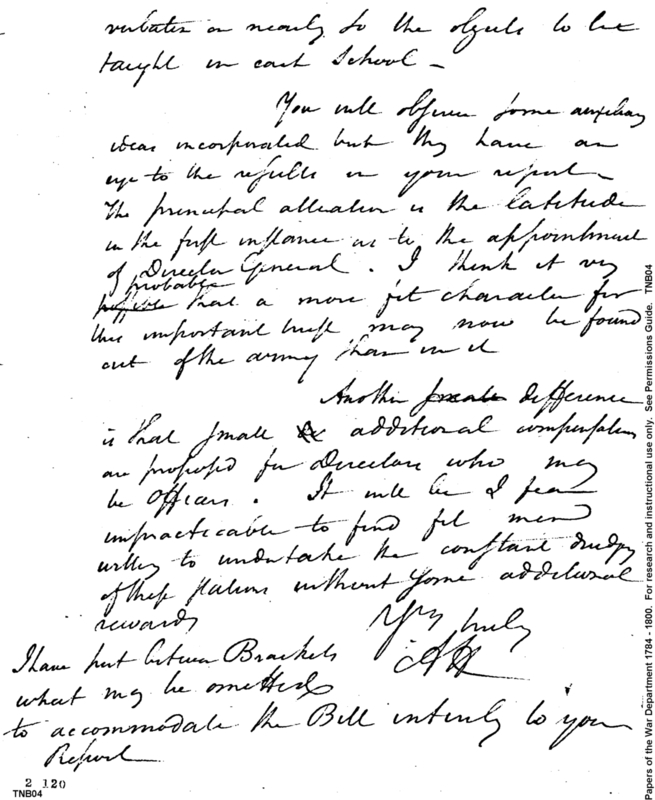 verbatim or nearly so the objects to be
taught in each School –
You will observe some auxiliary
ideas incorporated but they have an
eye to the results in your report –
The principal alteration is the latitude
in the first instance as to the appointment
of Director General. I think it very
probable
possible that a more fit character for
this important trust may now be found
out of the army than in it
Another small difference
is that small additional compensations
are proposed for Directors who may
be Officers. It will be I fear
impracticable to find fit men
willing to undertake the constant drudgery
of these stations without some additional
rewards
Yrs truly
AH
I have put between Brackets
what may be omitted
to accommodate the Bill intirely to your
Report
2 120
TNB04
Papers of the War Department 1784 - 1800. For research and instructional use only. See Permissions Guide. TNB04